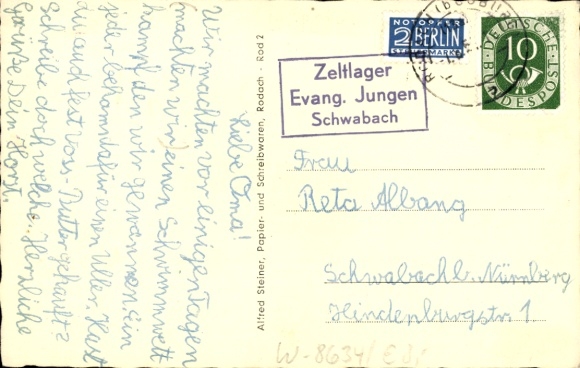 Liebe Oma!
Wir machten vor einigen Tagen
machten wir einen Schwimmwett
kampf den wir gewannen. Ein
jeder bekam dafür einen Uller. Hast
du auch fest Voss-Butter gekauft?
Schreibe doch welche. Herzliche
Grüße Dein Horst.
Alfred Steiner, Papier- und Schreibwaren, Rodach - Rod 2
Zeltlager
Evang. Jungen
Schwabach
NOTOPFER
2 BERLIN
STEUERMARKE
DEUTSCHE
BUNDESPOST
10
Frau
Reta Albang
Schwabach b. Nürnberg
Hindenburgstr. 1
W-8634/